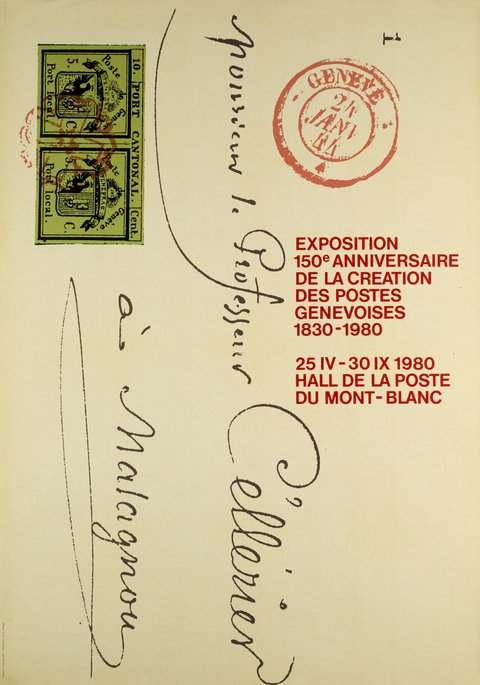 1
GENEVE
24
JANV
44
10 PORT CANTONAL. Cent.
Poste Genève
5. C.
Port local.
Poste Genève
5. C.
Port local.
Monsieur le Professeur Cellérier
à Malagnou
EXPOSITION
150e ANNIVERSAIRE
DE LA CREATION
DES POSTES
GENEVOISES
1830-1980
25 IV-30 IX 1980
HALL DE LA POSTE
DU MONT-BLANC